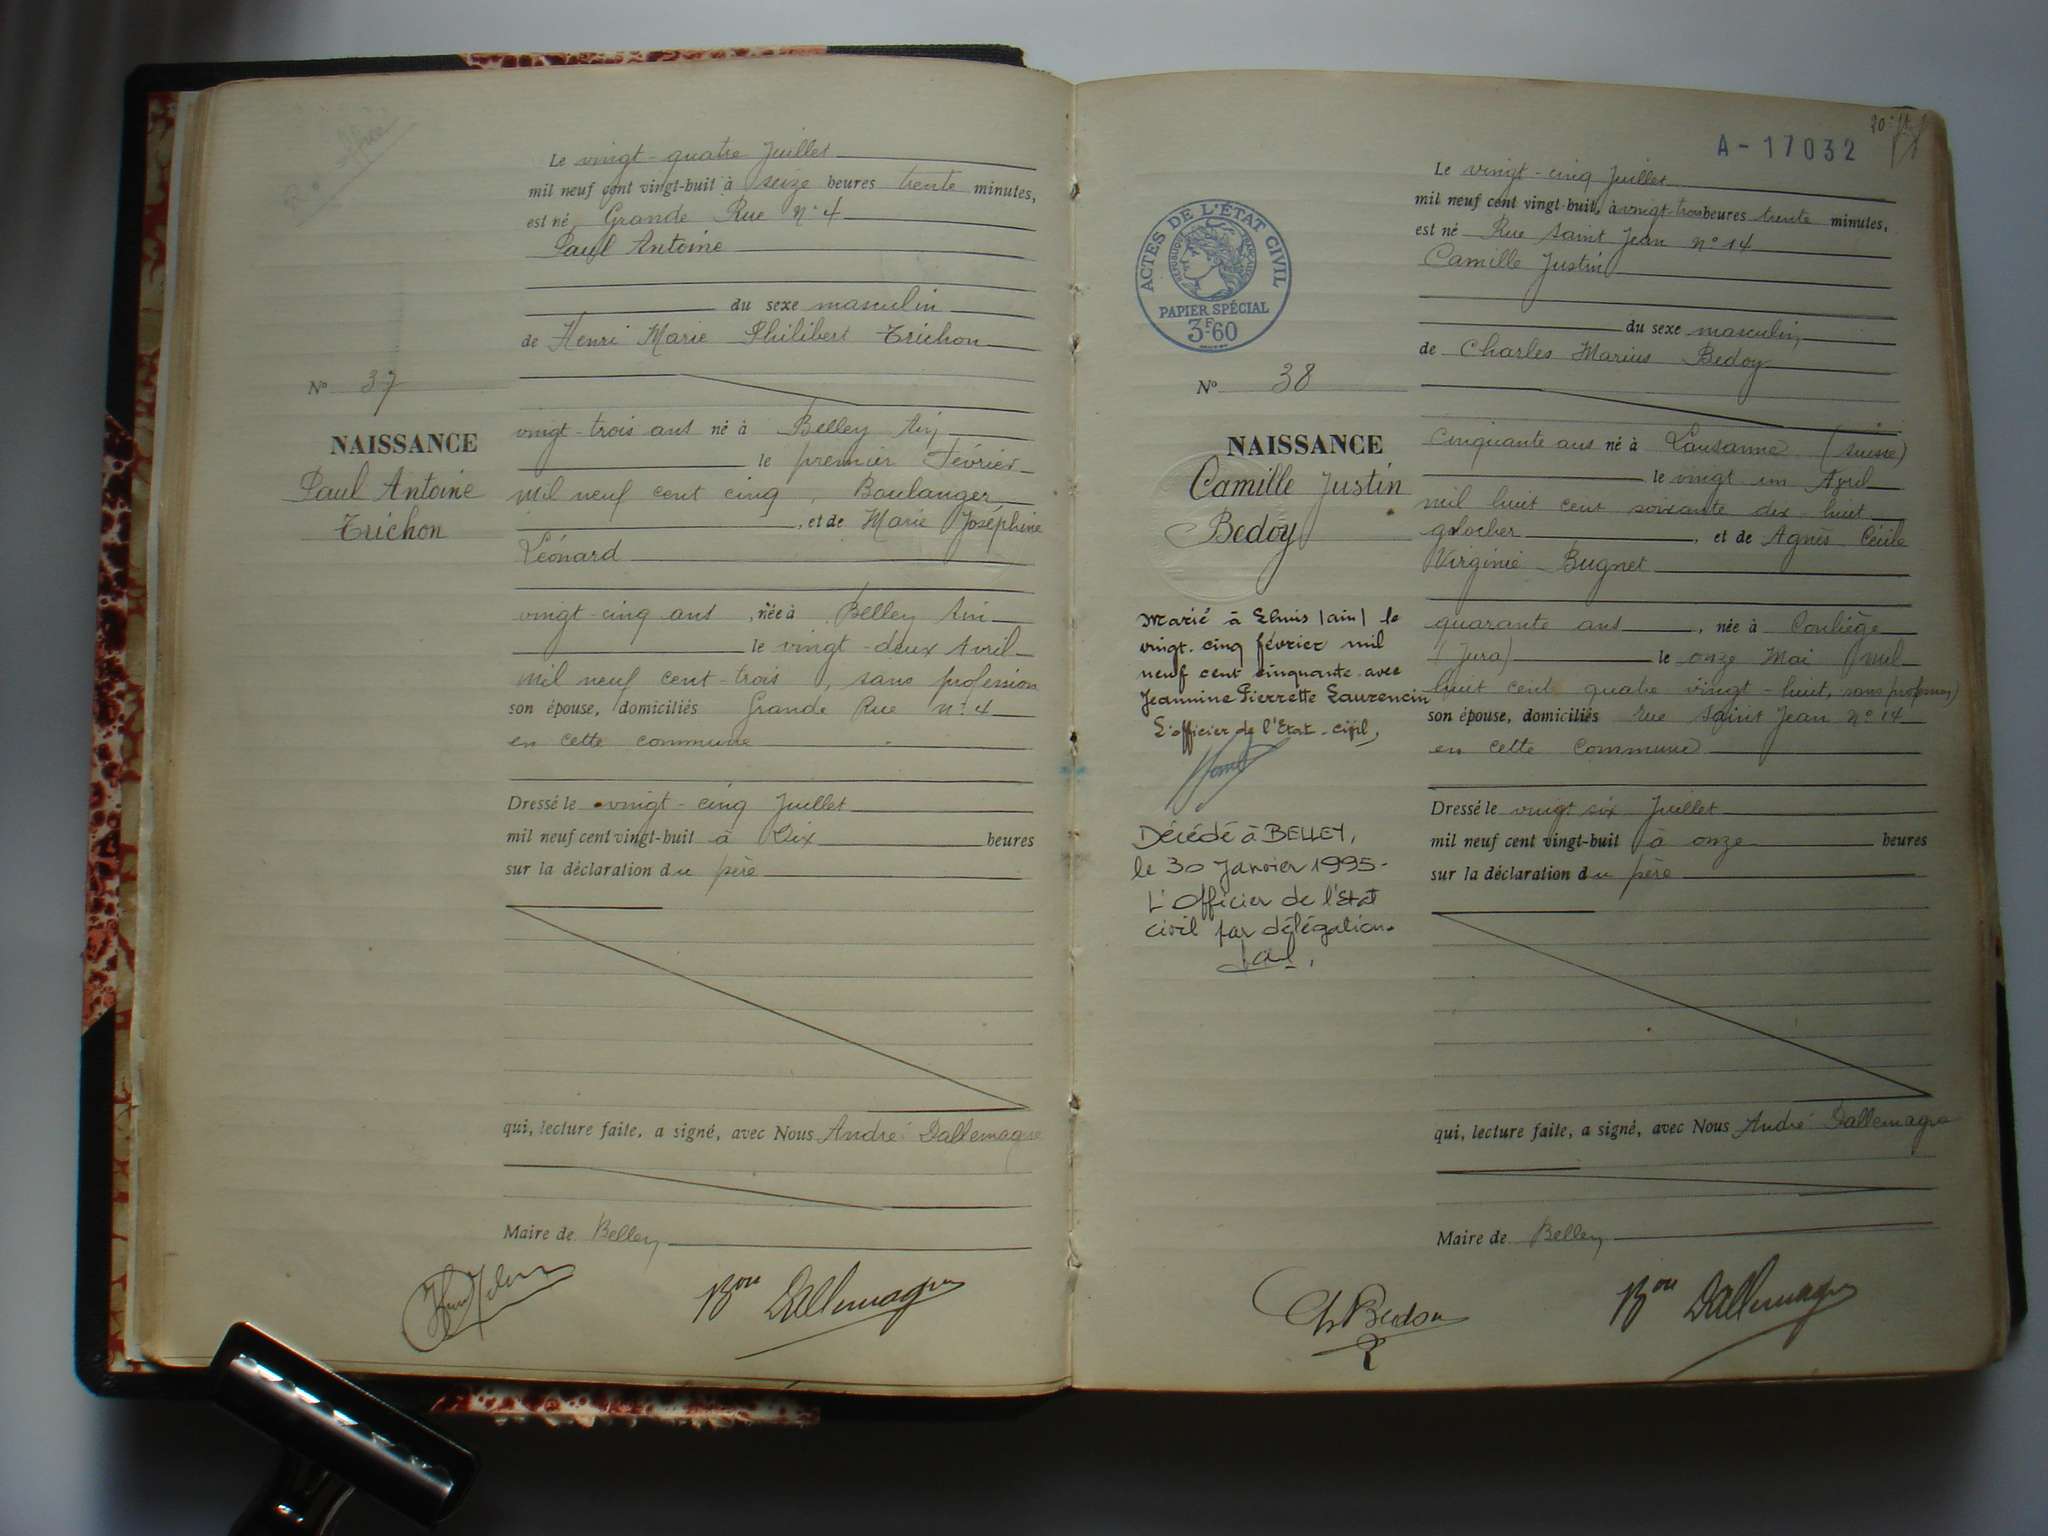 Le vingt-quatre Juillet
mil neuf cent vingt-huit à seize heures trente minutes,
est né Grande Rue N° 4
Paul Antoine
du sexe masculin
de Henri Marie Philibert Trichon
N° 37
NAISSANCE
Paul Antoine
Trichon
vingt-trois ans né à Belley Ain
le premier Février
mil neuf cent cinq, Boulanger
, et de Marie Joséphine
Léonard
vingt-cinq ans, née à Belley Ain
le vingt-deux Avril
mil neuf cent-trois, sans profession
son épouse, domiciliés Grande Rue n° 4
en cette commune
Dressé le vingt-cinq Juillet
mil neuf cent vingt-huit à Dix heures
sur la déclaration du père
qui, lecture faite, a signé, avec Nous André Dallemagne
Maire de Belley
Bon Dallemagne
A-17032
ACTES DE L'ÉTAT CIVIL
RÉPUBLIQUE FRANÇAISE
PAPIER SPÉCIAL
3F60
Le vingt-cinq Juillet
mil neuf cent vingt-huit, à vingt-trois heures trente minutes,
est né Rue Saint Jean N° 14
Camille Justin
du sexe masculin
de Charles Marius Bedoy
N° 38
NAISSANCE
Camille Justin
Bedoy
Marié à Lhuis (ain) le
vingt-cinq février mil
neuf cent cinquante avec
Jeannine Pierrette Laurencin
L'officier de l'Etat-civil,
Décédé à BELLEY,
le 30 Janvier 1995-
L'Officier de l'Etat
civil par délégation.
cinquante ans né à Lausanne (Suisse)
le vingt un Avril
mil huit cent soixante dix huit
, et de Agnès Cécile
Virginie Bugnet
quarante ans, née à Conliège
(Jura) le onze Mai mil
huit cent quatre vingt-huit, sans profession
son épouse, domiciliés rue Saint Jean N° 14
en cette commune
Dressé le vingt six Juillet
mil neuf cent vingt-huit à onze heures
sur la déclaration du père
qui, lecture faite, a signé, avec Nous André Dallemagne
Maire de Belley
Bon Dallemagne